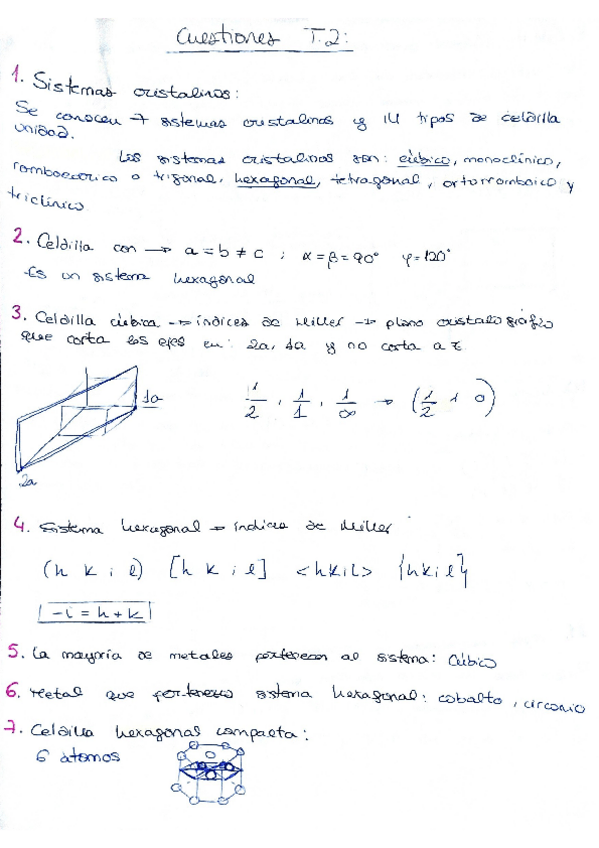 Cuestiones T.2:
1. Sistemas cristalinos:
Se conocen 7 sistemas cristalinos y 14 tipos de celdilla
unidad.
Los sistemas cristalinos son: cúbico, monoclínico,
romboédrico o trigonal, hexagonal, tetragonal, ortorrombico y
triclínico
2. Celdilla con → a = b ≠ c ; α = β = 90° φ = 120°
-Es un sistema hexagonal
3. Celdilla cúbica → índices de Miller → plano cristalográfico
que corta los ejes en: 2a, 1a y no corta a z
1a
1/2 , 1/1 , 1/∞ → (1/2 1 0)
2a
4. Sistema hexagonal → índices de Miller
(h k i l) [h k i l] <hkil> {hkil}
-i = h + k
5. La mayoría de metales pertenecen al sistema: Cúbico
6. Metal que pertenezca sistema hexagonal: cobalto, circonio
7. Celdilla hexagonal compacta:
6 átomos